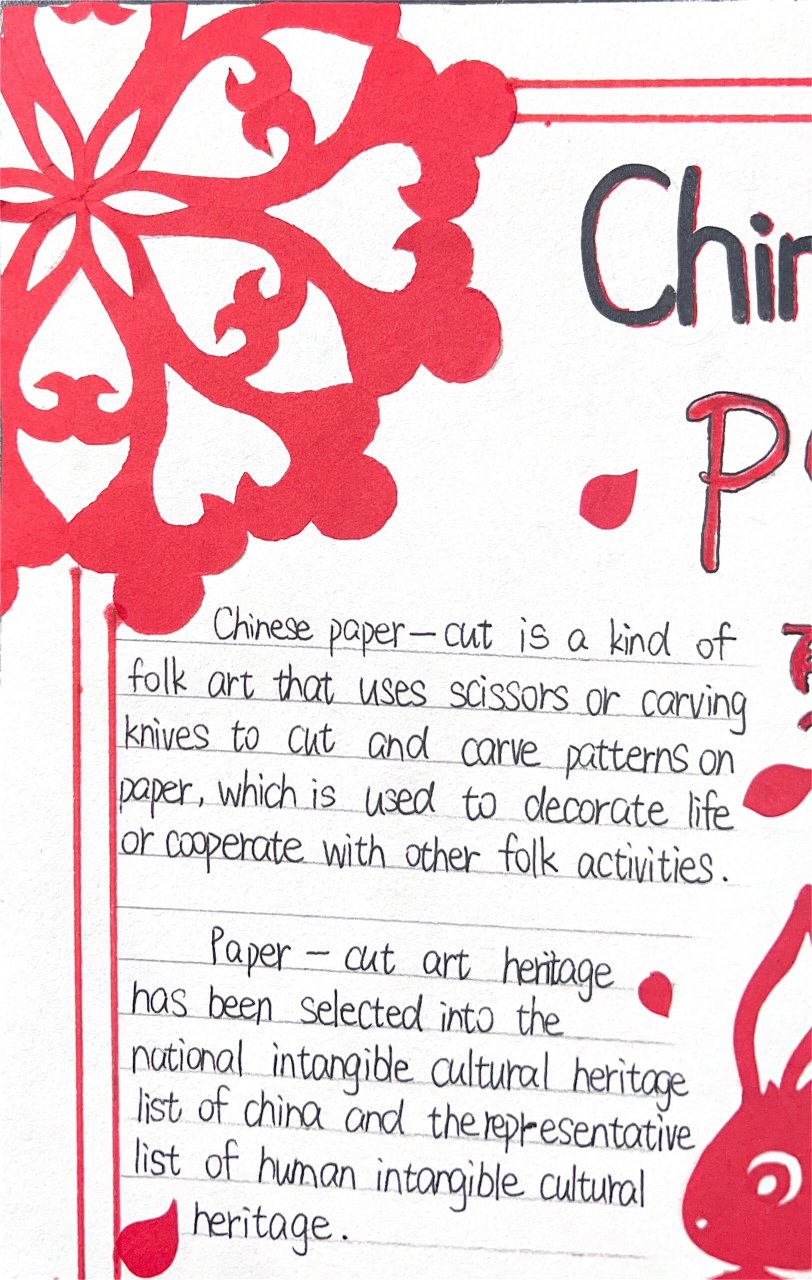 Chin
P
Chinese paper-cut is a kind of
folk art that uses scissors or carving
knives to cut and carve patterns on
paper, which is used to decorate life
or cooperate with other folk activities.
Paper-cut art heritage
has been selected into the
national intangible cultural heritage
list of china and the representative
list of human intangible cultural
heritage.